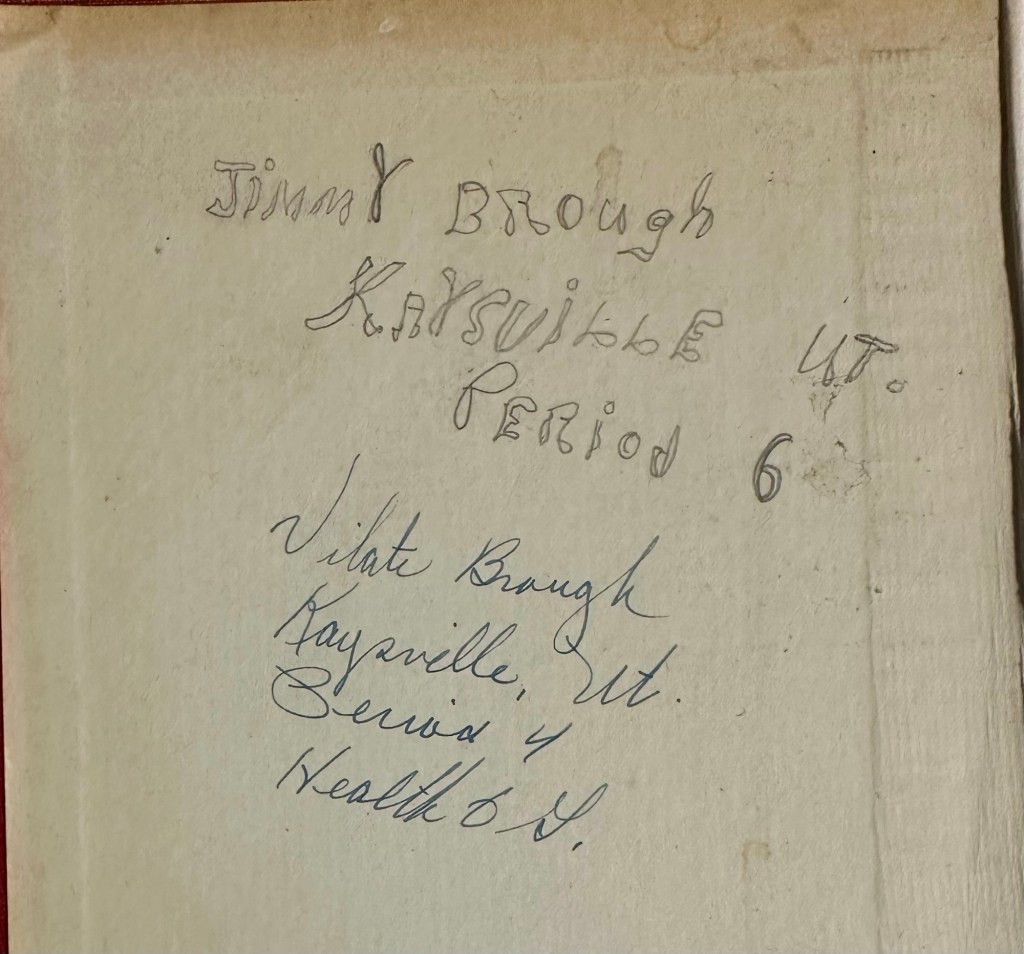 Jimmy Brough
Kaysville Ut.
Period 6
Vilate Brough
Kaysville, Ut.
Period 4
Health 6 G.